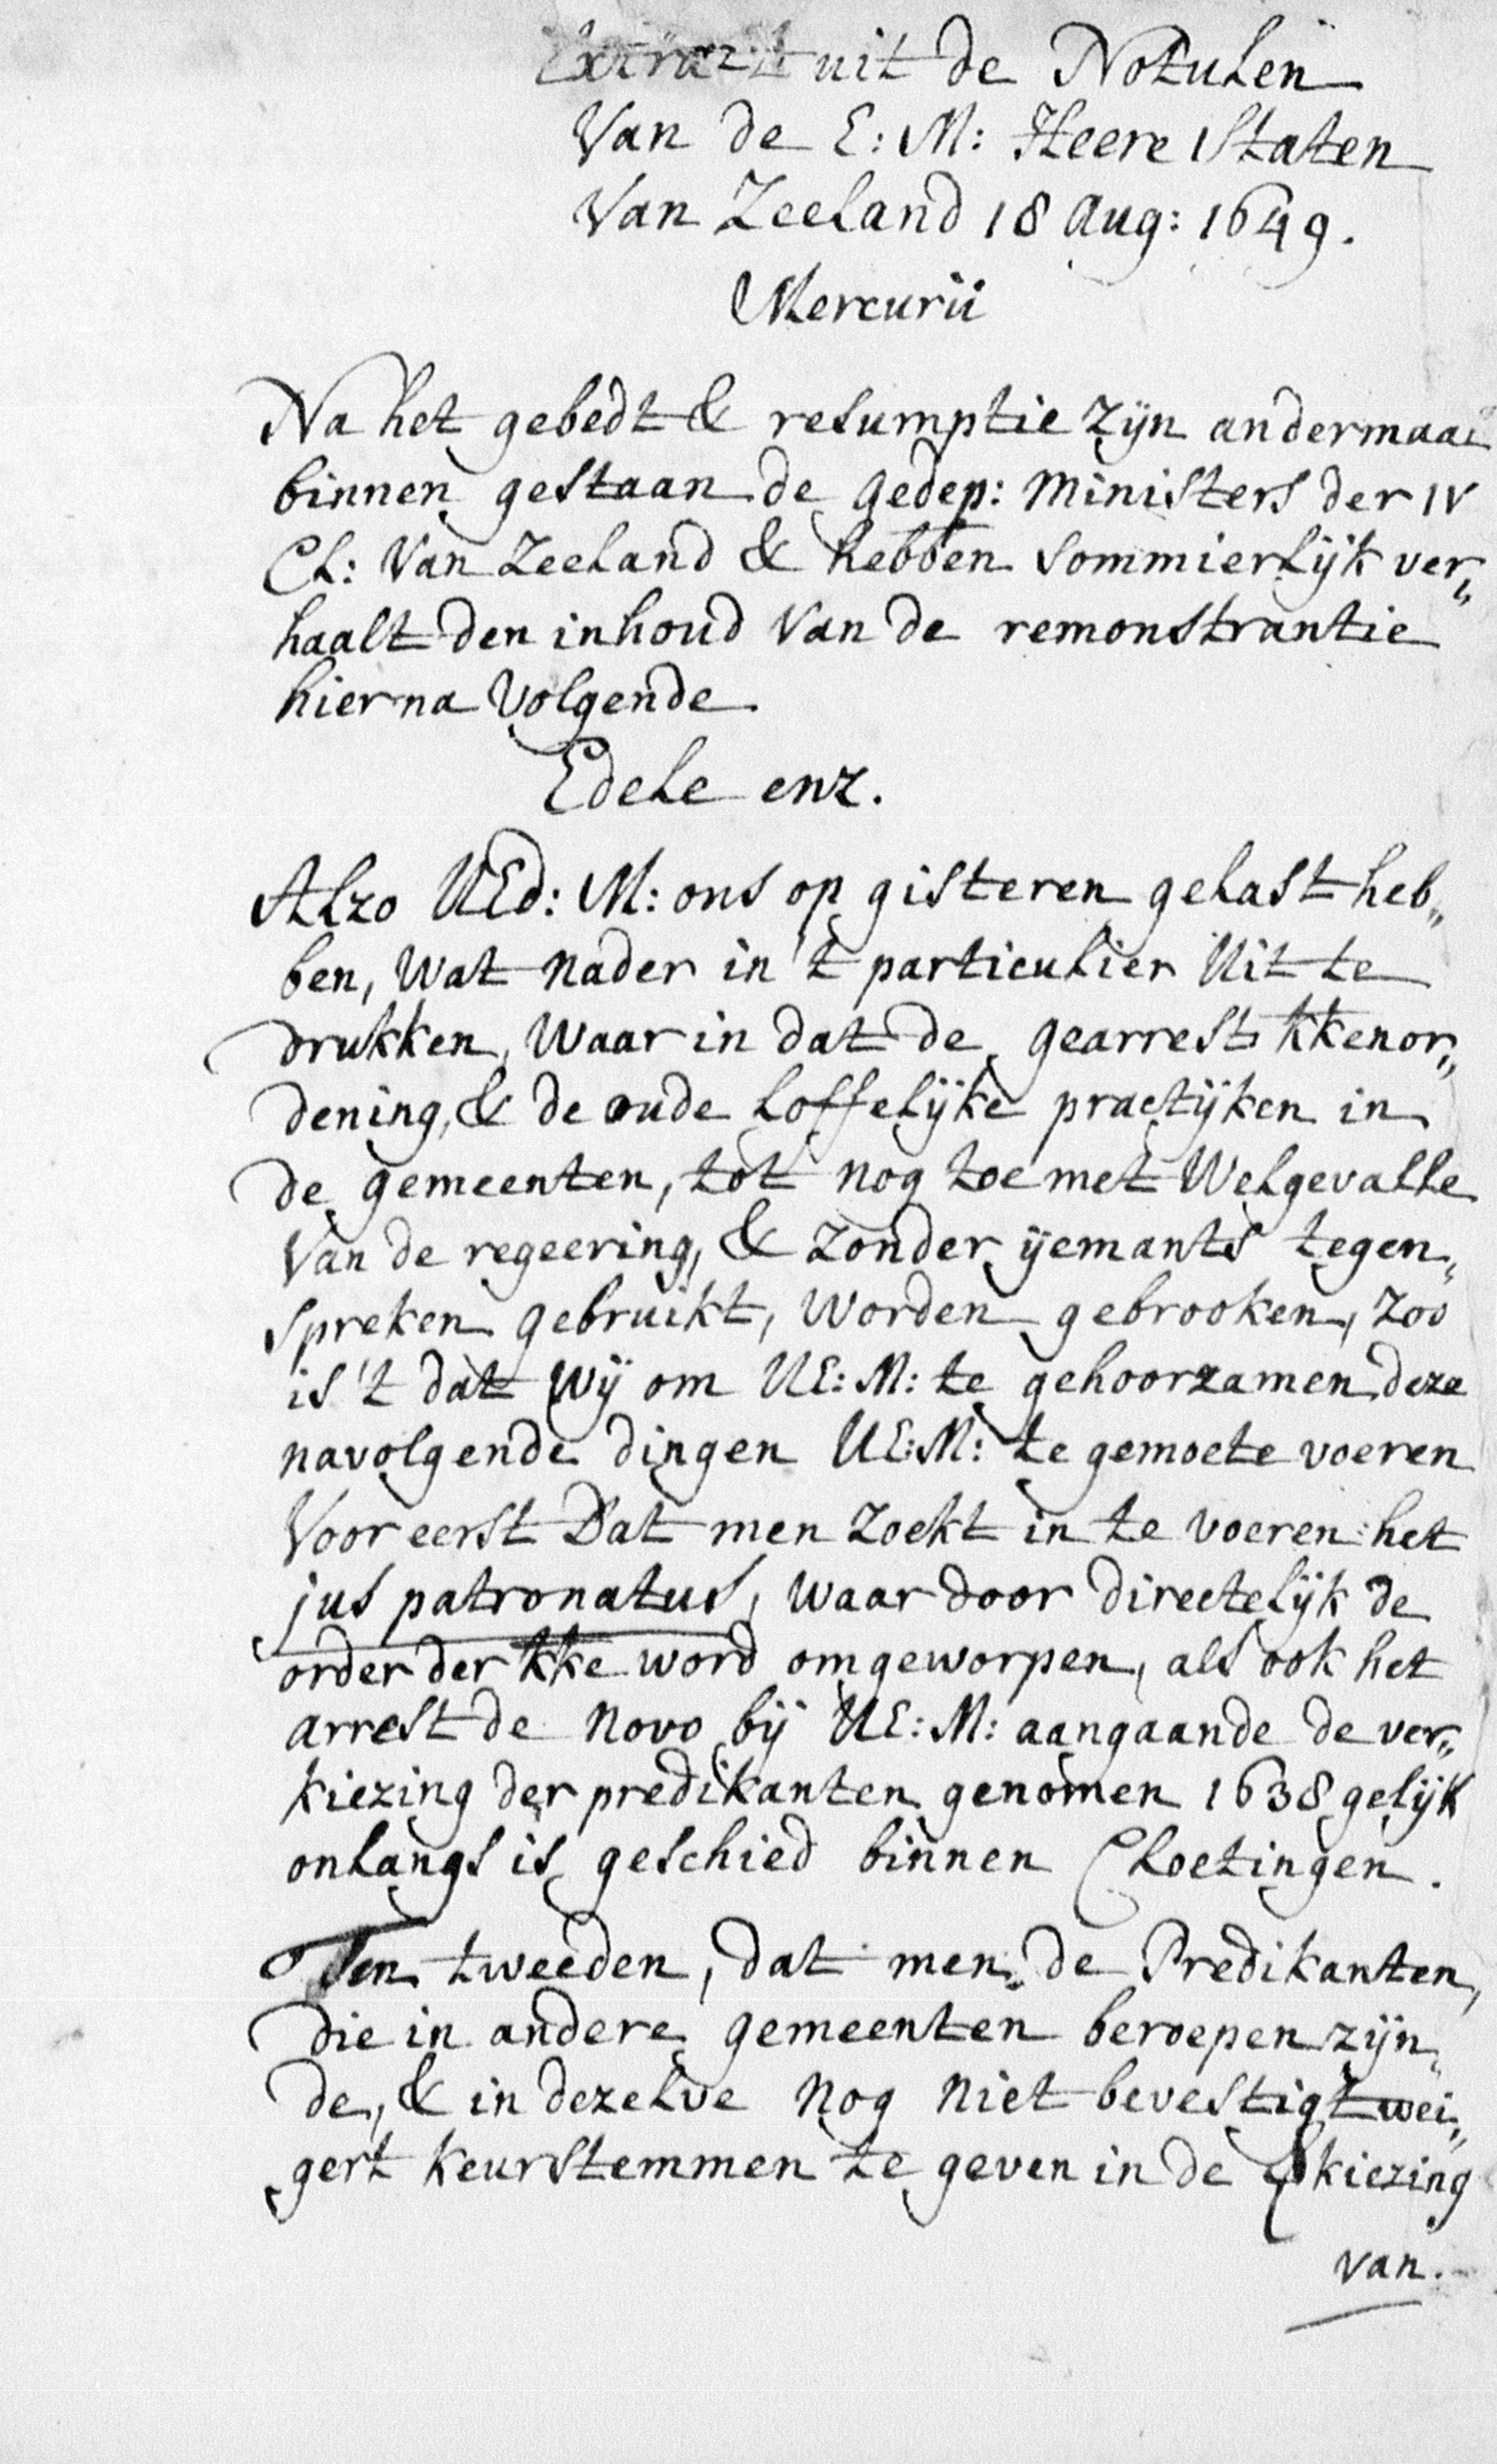 Extract uit de Notulen
Van de E: M: Heere Staten
Van Zeeland 18 Aug: 1649.
Mercurii
Na het gebedt & resumptie zijn andermaal
binnen gestaan de gedep: Ministers der IV
Cl: Van Zeeland & hebben sommierlijk ver„
haalt den inhoud Van de remonstrantie
hierna Volgende
Edele enz.
Alzo UEd: M: ons op gisteren gelast heb„
ben, Wat nader in 't particulier Uit te
drukken, Waar in dat de gearrest. kkenor„
dening, & de oude loffelijke practijken in
de gemeenten, tot nog toe met Welgevalle
Van de regeering, & zonder ijemants tegen„
spreken gebruikt, Worden gebrooken, zoo
is 't dat wij om UE: M: te gehoorzamen deze
navolgende dingen UE: M: te gemoete voeren
Voor eerst Dat men zoekt in te voeren het
jus patronatus, waar door directelijk de
order der kke word omgeworpen, als ook het
arrest de novo bij UE: M: aangaande de ver„
kiezing der predikanten genomen 1638 gelijk
onlangs is geschied binnen Cloetingen.
Ten tweeden, dat men de Predikanten,
die in andere gemeenten beroepen zijn„
de, & in dezelve nog niet bevestigt wei„
gert keurstemmen te geven in de kiezing
van.